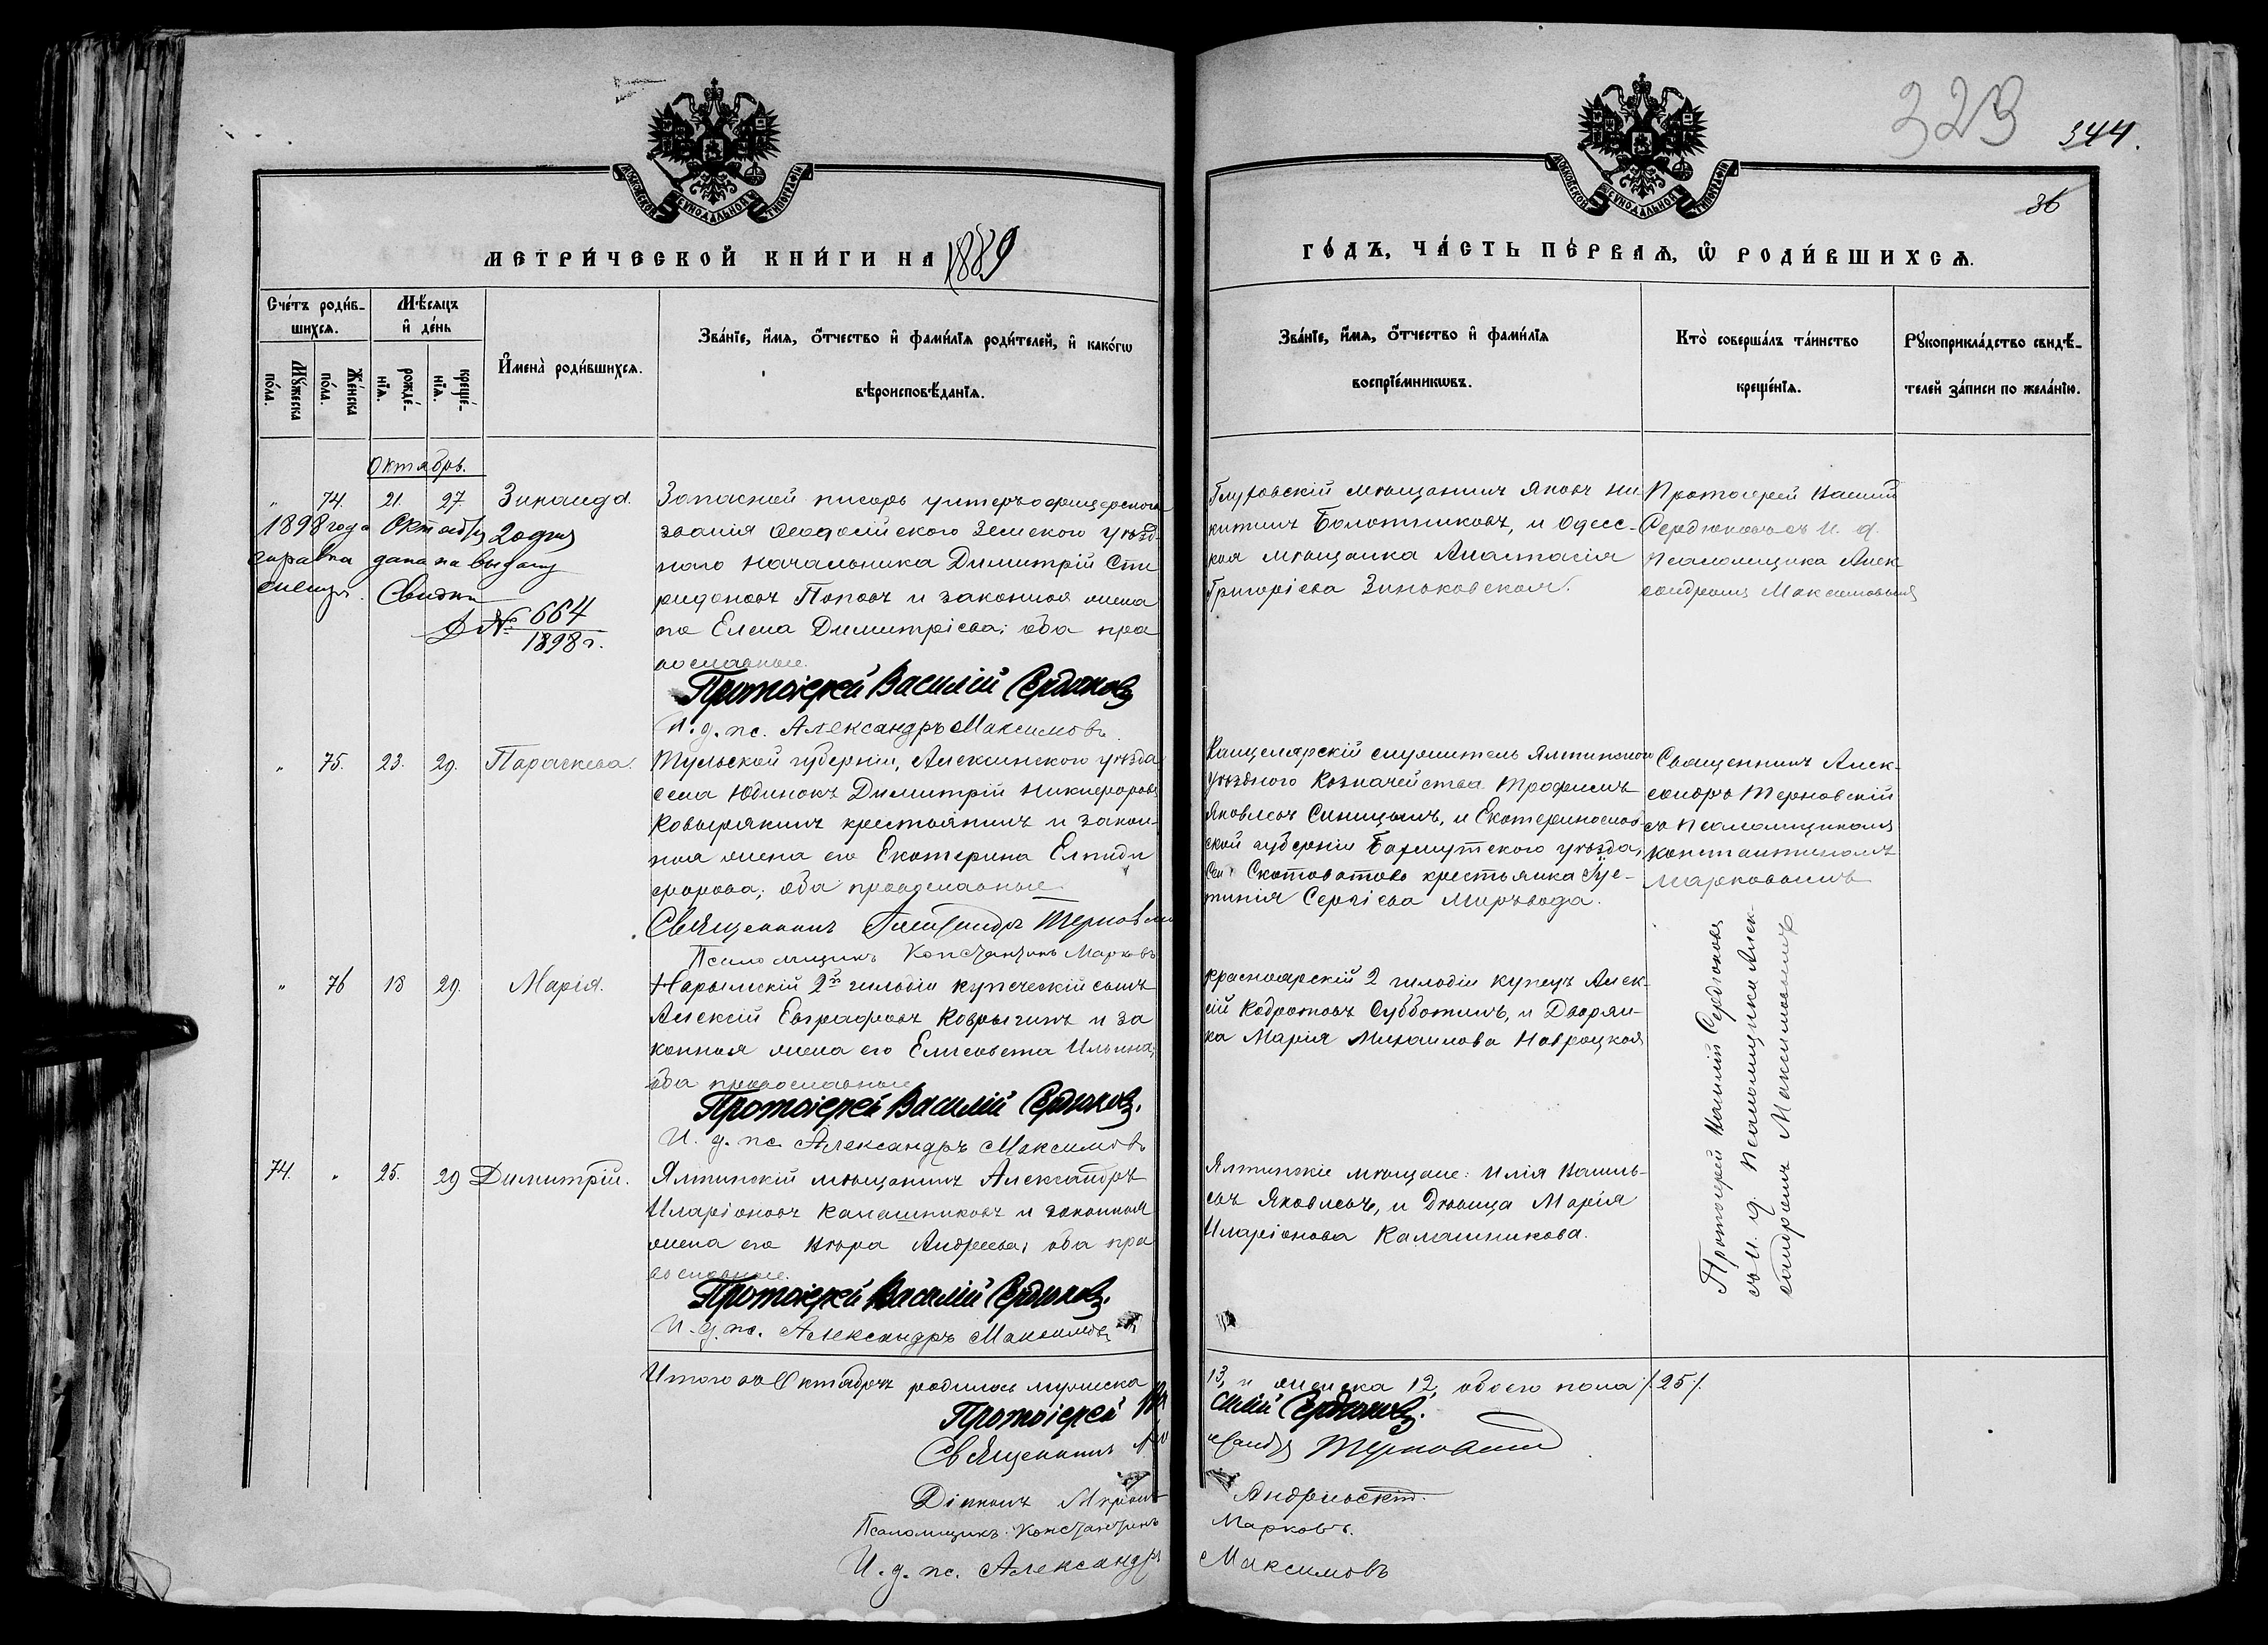 323
344.
36
МОСКОВСКОЙ СѴНОДАЛЬНОЙ ТИПОГРАФІИ
МОСКОВСКОЙ СѴНОДАЛЬНОЙ ТИПОГРАФІИ
МЕТРИ́ЧЕСКОЙ КНИ́ГИ НА 1889
ГО́ДЪ, ЧА́СТЬ ПЕ́РВАѦ, Ѡ҆ РОДИ́ВШИХСѦ.
Сче́тъ роди́в-
шихсѧ.
Мꙋ́жеска
по́ла.
Же́нска
по́ла.
Мѣ́сѧцъ
и҆ де́нь
рожде́-
нїѧ.
креще́-
нїѧ.
И҆мена̀ роди́вшихсѧ.
Зва́нїе, и҆́мѧ, ѻ҆́тчество и҆ фами́лїѧ роди́телей, и҆ како́гѡ
вѣроисповѣ́данїѧ.
Зва́нїе, и҆́мѧ, ѻ҆́тчество и҆ фами́лїѧ
воспрїе́мникѡвъ.
Кто̀ соверша́лъ та́инство
креще́нїѧ.
Рꙋкоприкла́дство свидѣ́-
телей за́писи по жела́нїю.
Октябрь.
" 74. 21. 27. Зинаида.
1898 года Октября 20 дня
справка дана на выдачу
Свидѣт
№ 664
1898 г.
Запасной писарь унтеръ-офицерскаго
званія Ѳеодосійскаго Земскаго уѣзд-
наго начальника Димитрій Спи
ридоновъ Поповъ и законная жена
его Елена Димитріева; оба пра
вославные.
Протоіерей Василій Сердюковъ
И. д. пс. Александръ Максимовъ.
Глуховскій мѣщанинъ Яковъ Ни-
китинъ Болотниковъ, и Одесс-
кая мѣщанка Анастасія
Григоріева Зиньковская.
Протоіерей Василій
Сердюковъ съ и. д.
псаломщика Алек
сандромъ Максимовымъ
" 75. 23. 29. Параскева.
Тульской губерніи, Алексинскаго уѣзда
села Юдинокъ Димитрій Никифоровъ
Ковырякинъ крестьянинъ и закон-
ная жена его Екатерина Елпиди
форова; оба православные.
Священникъ Александръ Терновскій
Псаломщикъ Константинъ Марковъ
Канцелярскій служитель Ялтинскаго
Уѣзднаго Казначейства Трофимъ
Яковлевъ Синицынъ, и Екатеринослав-
ской губерніи Бахмутскаго уѣзда,
сел. Скотоватово крестьянка Іус-
тинія Сергіева
Священникъ Алек-
сандръ Терновскій
съ псаломщикомъ
Константиномъ
Марковымъ
" 76 18 29. Марія.
Нарымскій 2й гильдіи купеческій сынъ
Алексій Евграфовъ Коврыгинъ и за
конная жена его Елисавета Ильина;
оба православные
Протоіерей Василій Сердюковъ.
И. д. пс. Александръ Максимовъ
Красноярскій 2 гильдіи купецъ Алек-
сій Кодратовъ Субботинъ, и Дворян-
ка Марія Михаилова Навроцкая
Протоіерей Василій Сердюковъ
съ и. д. Псаломщика Алек-
сандромъ Максимовымъ
74. " 25. 29 Димитрій.
Ялтинскій мѣщанинъ Александръ
Иларіоновъ Калашниковъ и законная
жена его Вѣра Андреева; оба пра
вославные.
Протоіерей Василій Сердюковъ.
И. д. пс. Александръ Максимовъ
Ялтинскіе мѣщане: Илія Василь-
евъ Яковлевъ, и Дѣвица Марія
Иларіонова Калашникова.
Итого въ Октябрѣ родилось мужеска 13, и женска 12, обоего пола /25/.
Протоіерей Василій Сердюковъ.
Священникъ Александръ Терновскій
Діаконъ Андріевскій.
Псаломщикъ Константинъ Марковъ.
И. д. пс. Александръ Максимовъ